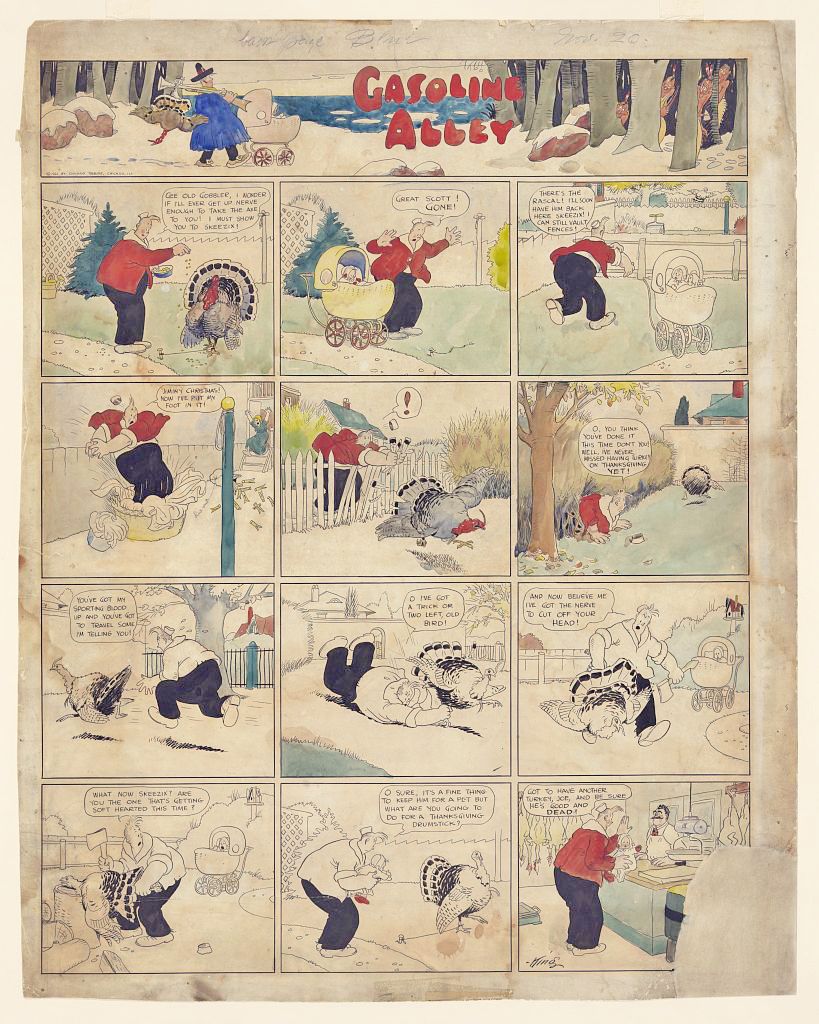 back page Blue
Nov. 20.
GASOLINE
ALLEY
GEE OLD GOBBLER, I WONDER
IF I'LL EVER GET UP NERVE
ENOUGH TO TAKE THE AXE
TO YOU! I MUST SHOW
YOU TO SKEEZIX!
GREAT SCOTT!
GONE!
THERE'S THE
RASCAL! I'LL SOON
HAVE HIM BACK
HERE SKEEZIX! I
CAN STILL VAULT
FENCES!
JIMINY CHRISTMAS!
NOW I'VE PUT MY
FOOT IN IT!
!
O, YOU THINK
YOU'VE DONE IT
THIS TIME DON'T YOU!
WELL, I'VE NEVER
MISSED HAVING TURKEY
ON THANKSGIVING
YET!
YOU'VE GOT MY
SPORTING BLOOD
UP AND YOU'VE GOT
TO TRAVEL SOME
I'M TELLING YOU!
O I'VE GOT
A TRICK OR
TWO LEFT, OLD
BIRD!
AND NOW BELIEVE ME
I'VE GOT THE NERVE
TO CUT OFF YOUR
HEAD!
WHAT NOW SKEEZIX? ARE
YOU THE ONE THAT'S GETTING
SOFT HEARTED THIS TIME?
O SURE, IT'S A FINE THING
TO KEEP HIM FOR A PET BUT
WHAT ARE YOU GOING TO
DO FOR A THANKSGIVING
DRUMSTICK?
GOT TO HAVE ANOTHER
TURKEY, JOE, AND BE SURE
HE'S GOOD AND
DEAD!
King